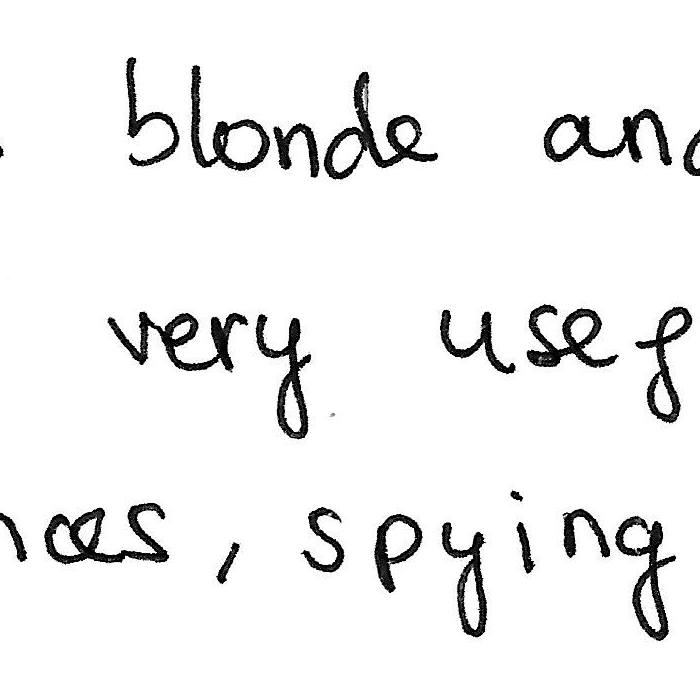 blonde and
very usef
nces, spying